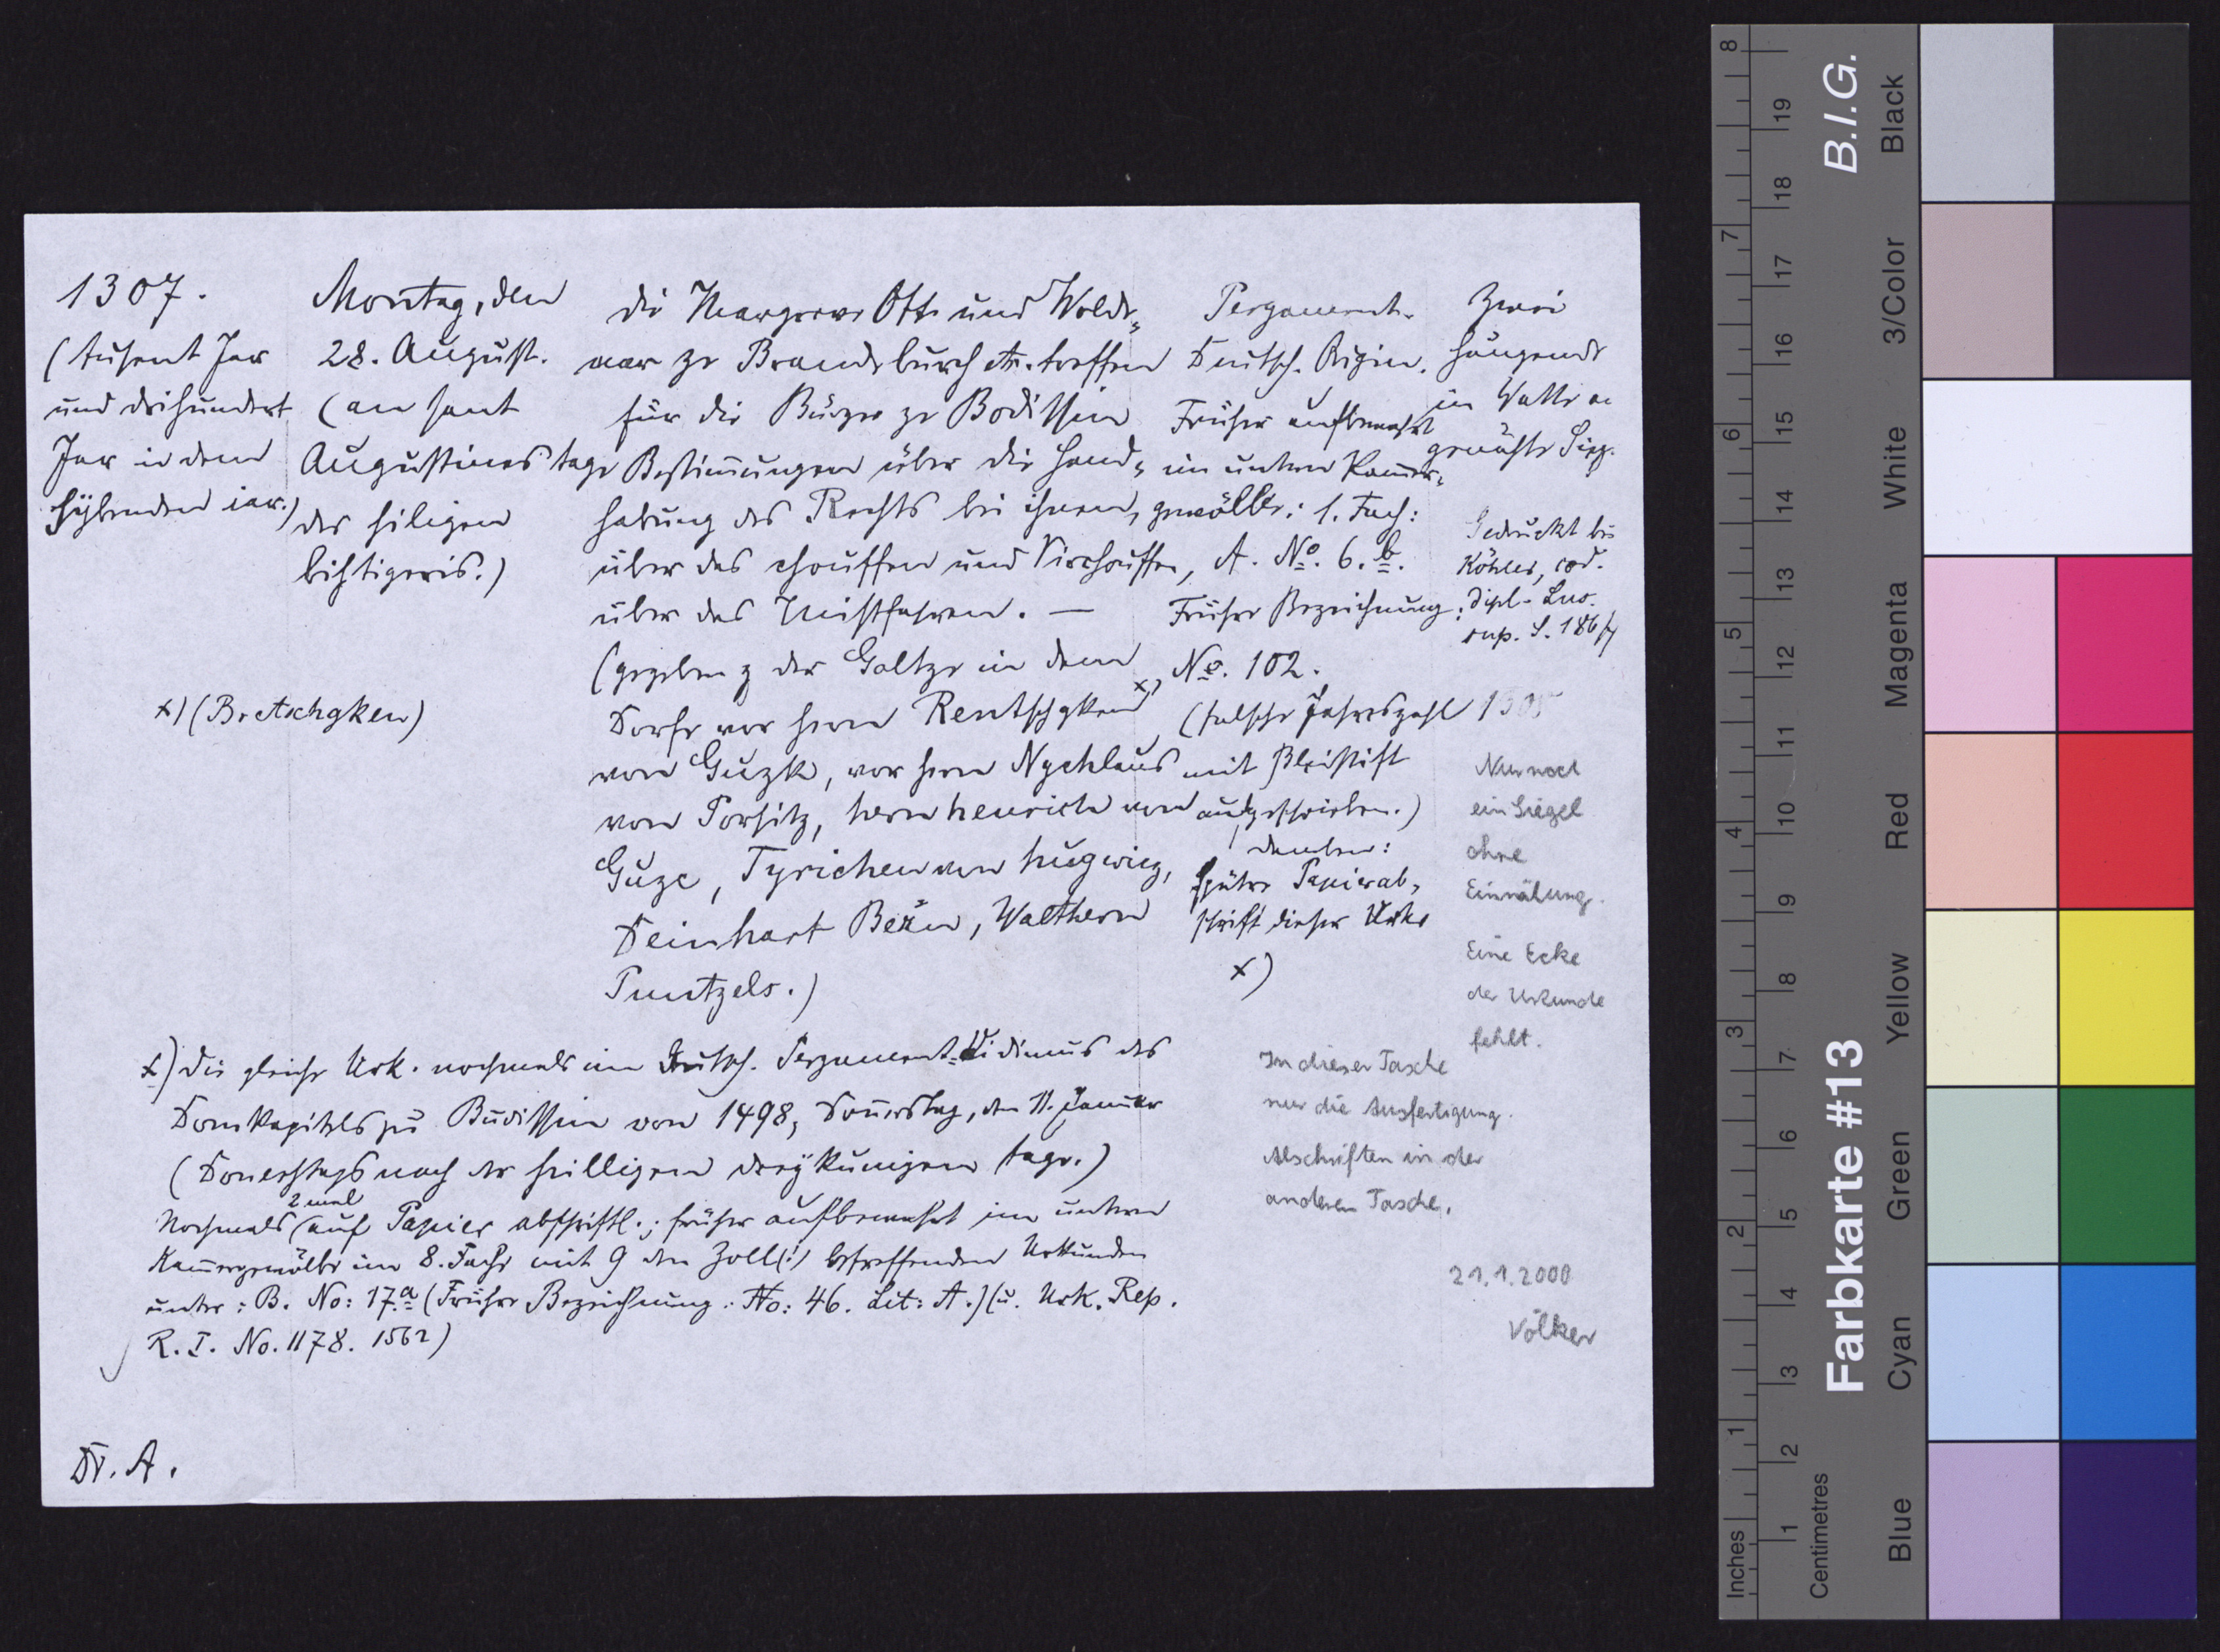 1307.
(tusent Jar
und drihundert
Jar in dem
sybenden iar.)
Montag, den
28. August.
(an sant
Augustines tage
des hiligen
bichtigeris.)
Die Margreve Otte und Wolde-
mar ze Brandeburch etc. treffen
für die Bürger ze Bodissin
Bestimungen über die Hand-
habung des Rechts bei ihnen,
über das chouffen und Virchouffen,
über das Mistfahren. —
(gegeben z der Goltze in dem
Dorfe vor hern Rentschgken x)
von Guzk, vor hern Nychlaus
von Porsitz, hern henrich von
Guzc, Tyrichen von hugwiz,
Deinhart Bern, Walthern
Puntzels.)
x) (Bretschgken)
Pergament.
Deutsch. Origin.
Früher aufbewahrt
im untern Kamer-
gewölbe: 1. Fach:
A. No. 6. b.
Frühere Bezeichnung:
No. 102.
(falsche Jahreszahl 1305
mit Bleistift
aufgeschrieben.)
daneben:
spätere Papierab-
schrift dieser Urke
x)
Zwei
hängende
in Watte ein
genähte Sieg.
Gedruckt bei
Köhler, cod.
dipl. Lus.
sup. S. 186 f
Nur noch
ein Siegel
ohne
Einnähung.
Eine Ecke
der Urkunde
fehlt.
x) Die gleiche Urk. nochmals im Deutsch. Pergament-Vidimus des
Domkapitels zu Budissin von 1498, Donerstag, den 11. Januar
(Donerstags nach der heilligen dreÿ kunigen tage.)
Nochmals 2 mal auf Papier abschriftl.; früher aufbewahrt im untern
Kamergewölbe im 8. Fache mit 9 den Zoll (!) betreffenden Urkunden
unter: B. No: 17.a (Frühere Bezeichnung: No: 46. Lit: A.) (u. Urk. Rep.
R. I. No. 1178. 1562)
In dieser Tasche
nur die Ausfertigung.
Abschriften in der
anderen Tasche.
21.1.2000
Völker
Dr. A.
Inches
1 2 3 4 5 6 7 8
Centimetres
1 2 3 4 5 6 7 8 9 10 11 12 13 14 15 16 17 18 19
Farbkarte #13
B.I.G.
Blue
Cyan
Green
Yellow
Red
Magenta
White
3/Color
Black